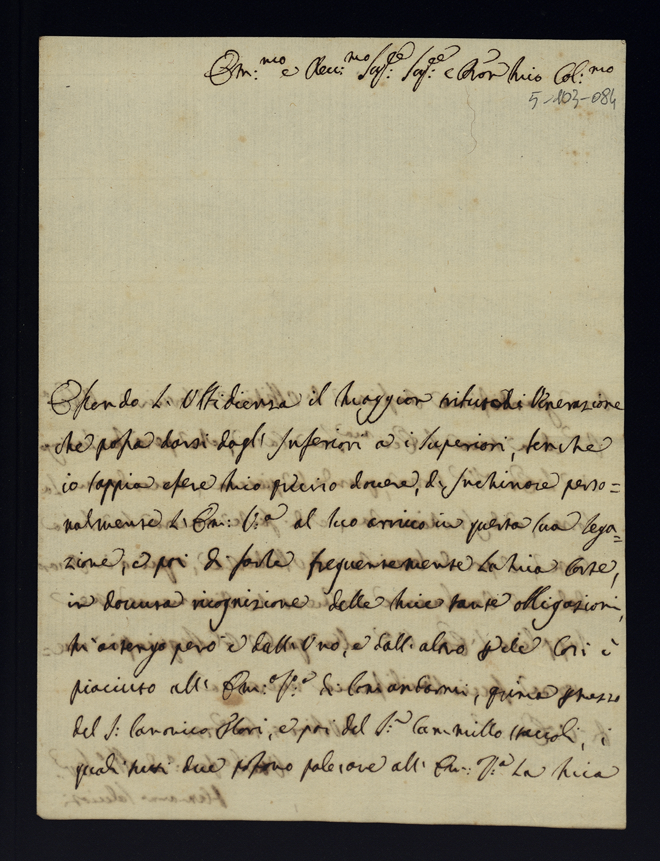 Em:mo e Rev:mo Sig:re Sig:re e Pron mio Col:mo
5-103-084
Essendo L'Ubbidienza il maggior tributo di Venerazione
che possa darsi dagl' Inferiori a i Superiori, benche
io sappia essere mio preciso dovere, d'Inchinare perso=
nalmente L'Em: V:a al suo arrivo in questa sua lega=
zione, e poi di farle frequentemente La mia Corte,
in dovuta ricognizione delle mie tante obbligazioni,
m'astengo però e dall'uno, e dall'altro Così è
piaciuto all' Em:a V:a di Comandarmi, prima
del S: Canonico Flori, e poi del S:r Cammillo i
quali tutti due possono palesare all' Em: V:a La mia